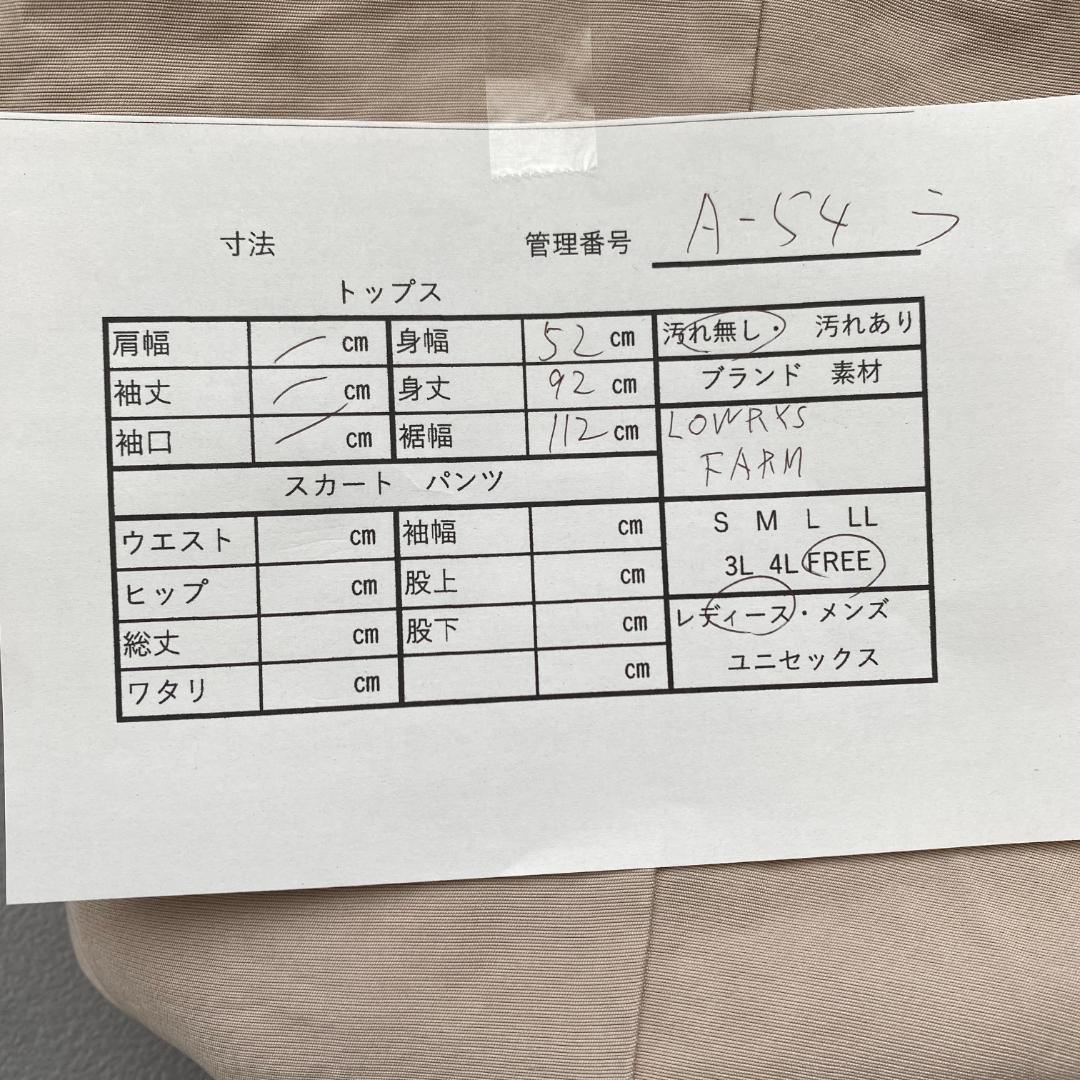 寸法 管理番号 A-54 う
トップス
肩幅 ー cm 身幅 52 cm 汚れ無し・ 汚れあり
袖丈 ー cm 身丈 92 cm ブランド 素材
袖口 ー cm 裾幅 112 cm LOWRYS
FARM
スカート パンツ
ウエスト cm 袖幅 cm S M L LL
ヒップ cm 股上 cm 3L 4L FREE
総丈 cm 股下 cm レディース・メンズ
ワタリ cm cm ユニセックス